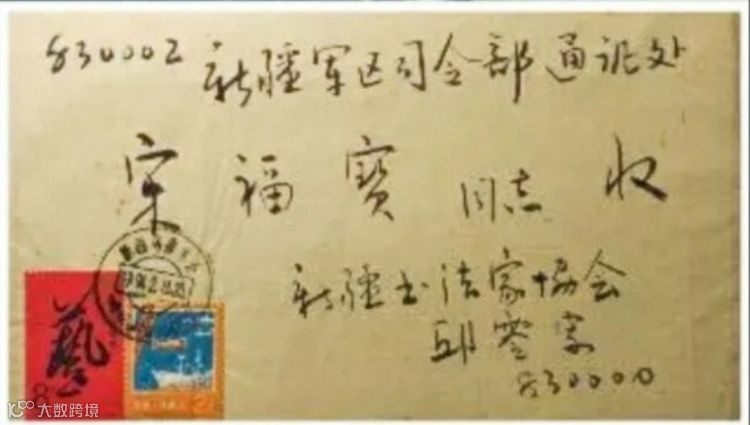 830002 新疆军区司令部通讯处
宋福宝 同志 收
新疆书法家协会
邱零家
830000
藝
8
大数跨境